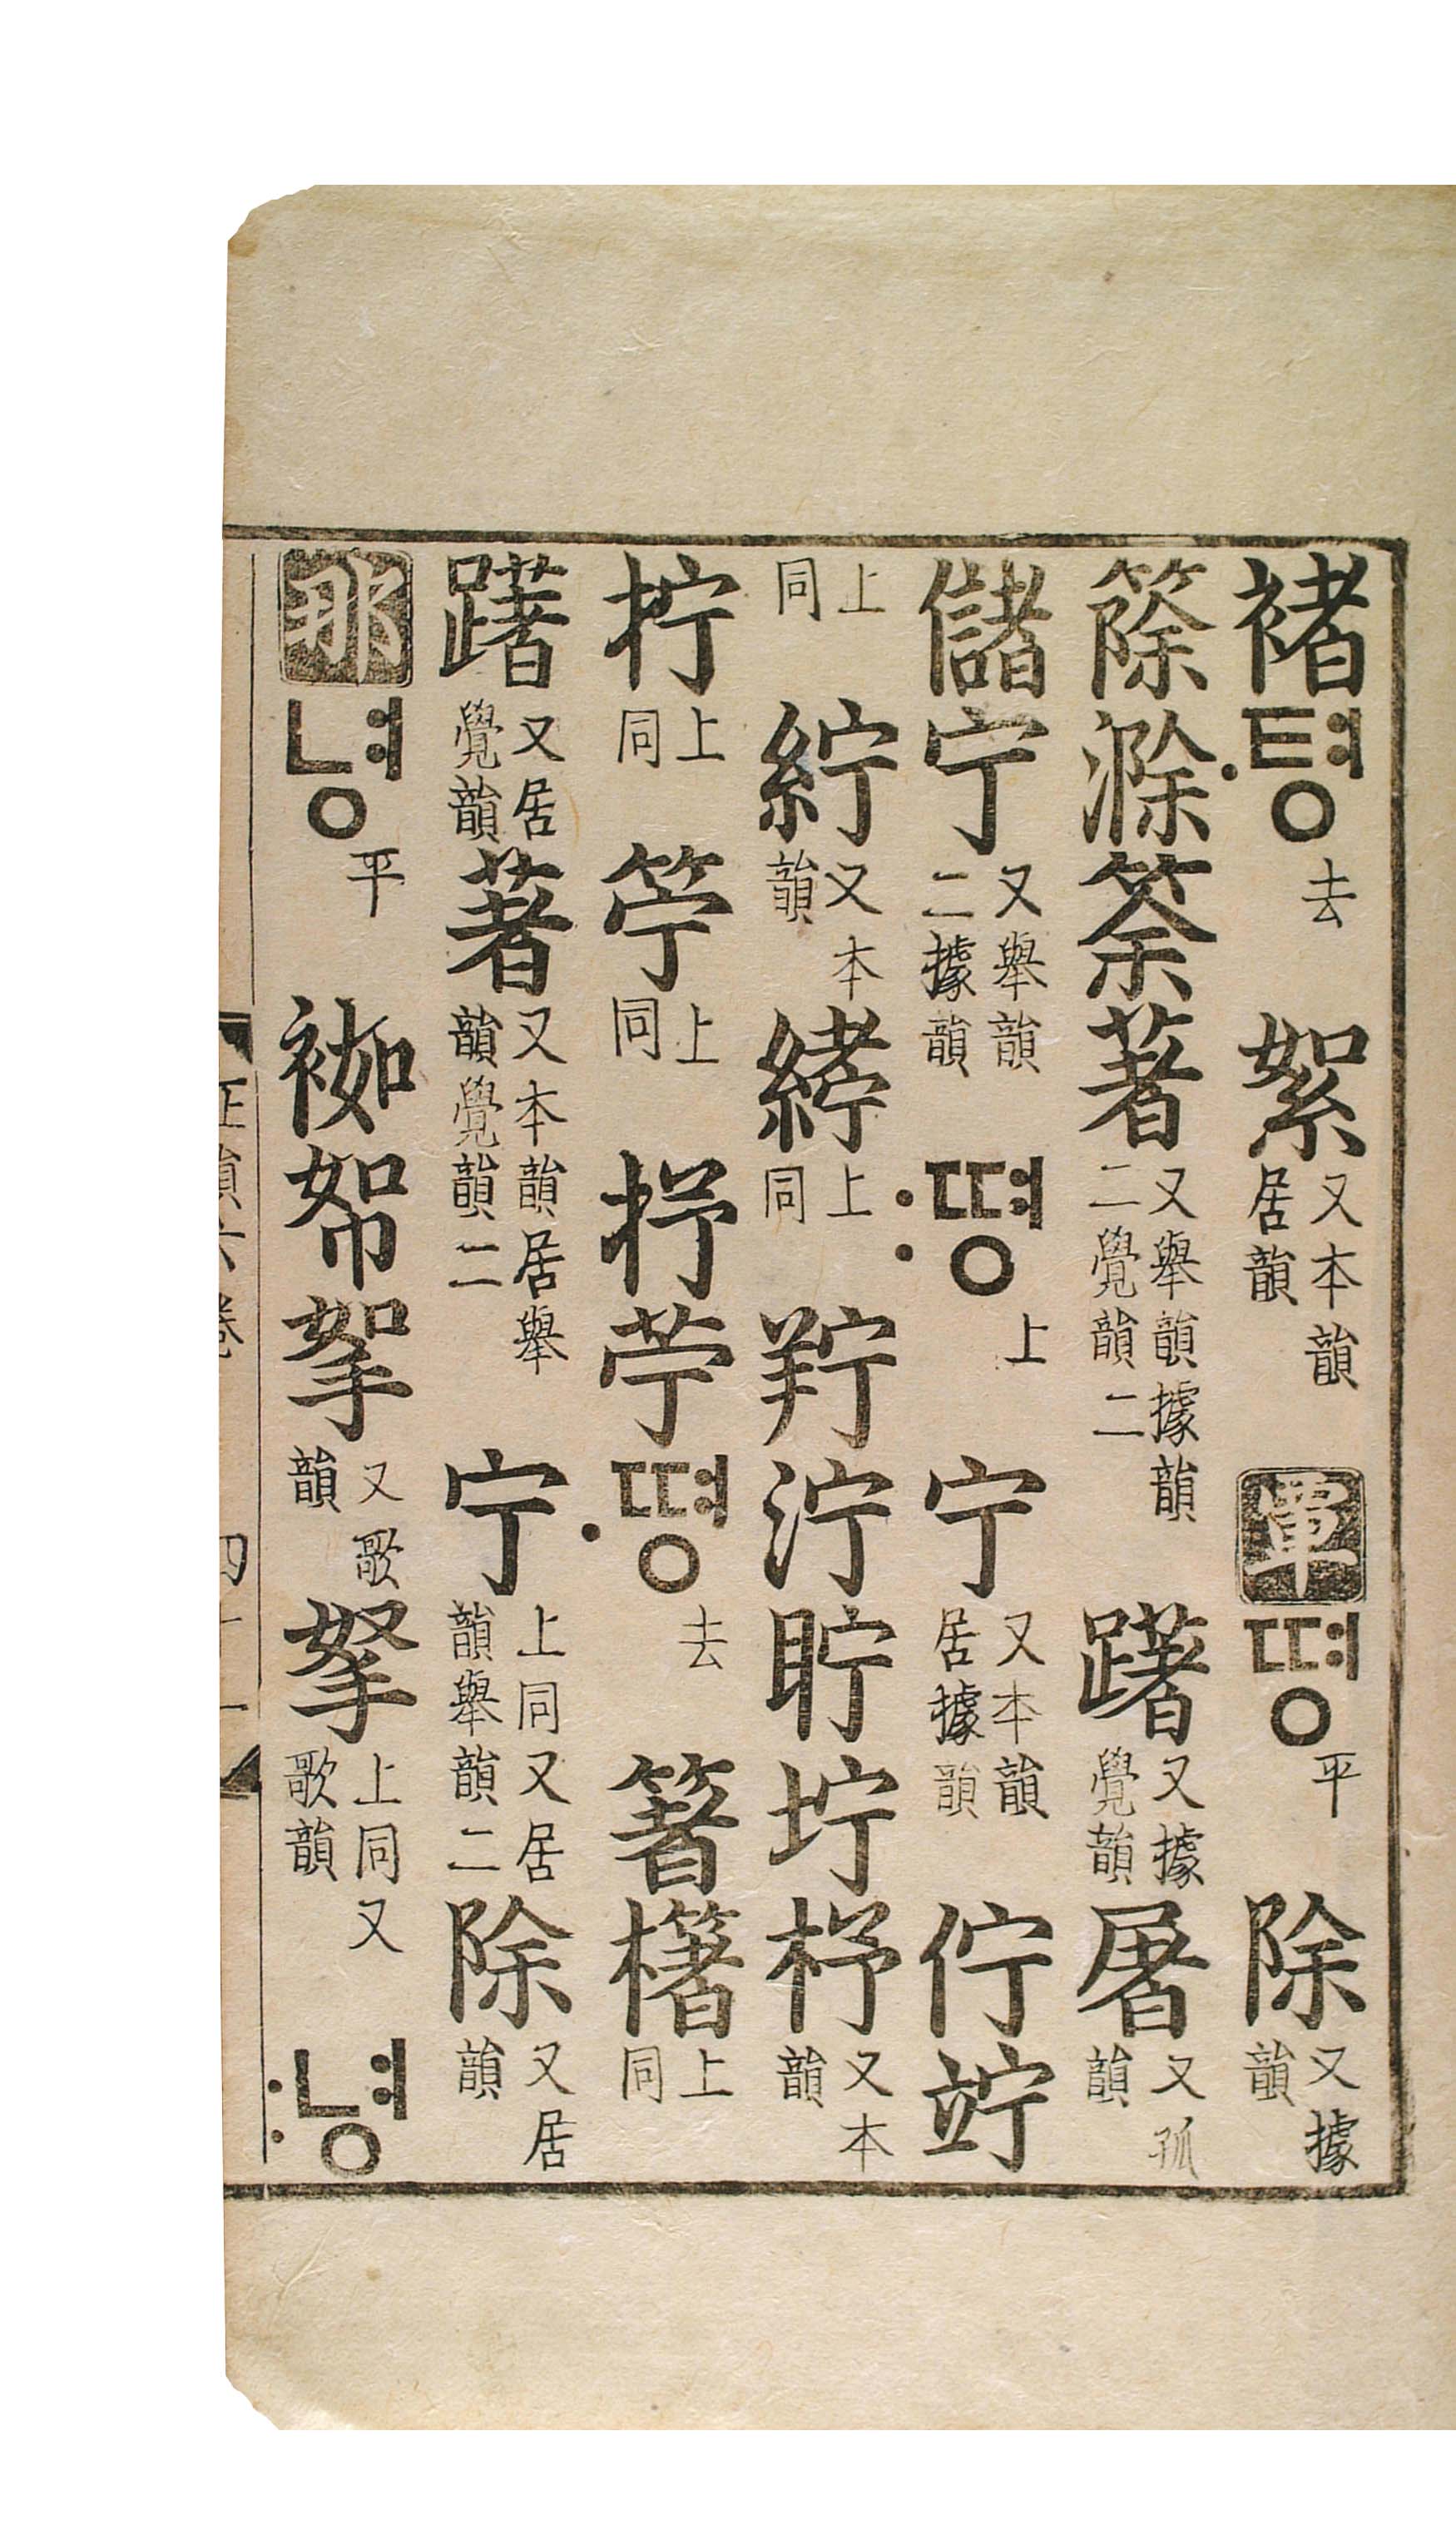 褚 ·텽 去 絮 又本韻居韻 覃 뗭 平 除 又據韻
篨滁筡著 又舉韻據韻二覺韻二 躇 又據覺韻 屠 又孤韻
儲宁 又舉韻二據韻 :뗭 上 宁 又本韻居據韻 佇竚
上同 紵 又本韻 上同 羜泞眝坾杼 又本韻
拧 上同 䇡 上同 抒苧 ·뗭 去 箸櫡 上同
躇 又居覺韻 著 又本韻居舉韻覺韻二 宁 上同又居韻舉韻二 除 又居韻
那 녕 平 袽帤挐 又歌韻 拏 上同又歌韻 :녕